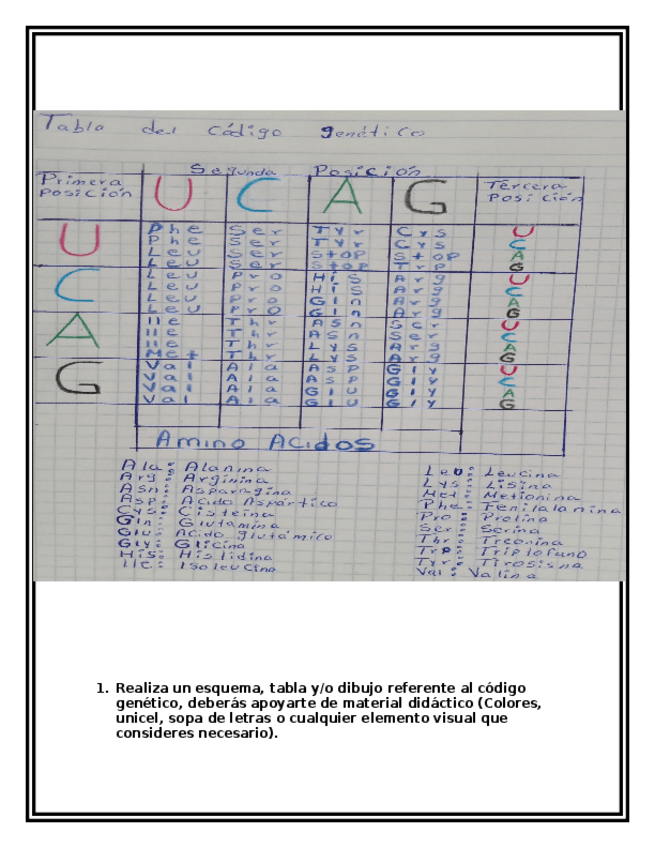 Tabla del código genético
Segunda Posición
Primera Posición U C A G Tercera Posición
U Phe Ser Tyr Cys U
Phe Ser Tyr Cys C
Leu Ser Stop Stop A
Leu Ser Stop Trp G
C Leu Pro His Arg U
Leu Pro His Arg C
Leu Pro Gln Arg A
Leu Pro Gln Arg G
A Ile Thr Asn Ser U
Ile Thr Asn Ser C
Ile Thr Lys Arg A
Met Thr Lys Arg G
G Val Ala Asp Gly U
Val Ala Asp Gly C
Val Ala Glu Gly A
Val Ala Glu Gly G
Amino Acidos
Ala: Alanina
Arg: Arginina
Asn: Asparagina
Asp: Acido Aspártico
Cys: Cisteína
Gln: Glutamina
Glu: Acido glutámico
Gly: Glicina
His: Histidina
Ile: Isoleucina
Leu: Leucina
Lys: Lisina
Met: Metionina
Phe: Fenilalanina
Pro: Prolina
Ser: Serina
Thr: Treonina
Trp: Triptofano
Tyr: Tirosisna
Val: Valina
1. Realiza un esquema, tabla y/o dibujo referente al código
genético, deberás apoyarte de material didáctico (Colores,
unicel, sopa de letras o cualquier elemento visual que
consideres necesario).